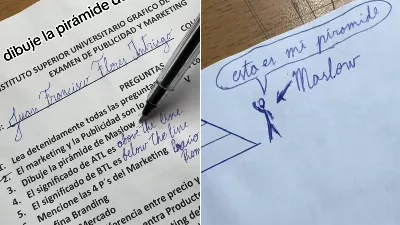 dibuje la pirámide d
NSTITUTO SUPERIOR UNIVERSITARIO GRAFICO DE
EXAMEN DE PUBLICIDAD Y MARKETING
Juan Francisco Flores Intriago
PREGUNTAS
V
1. Lea detenidamente todas las preguntas
2. El marketing y la Publicidad son lo
3. Dibuje la pirámide de Maslow
4. El significado de ATL es above the line
5. El significado de BTL es below the line
Mencione las 4 P's del Marketing
fina Branding
Mercado
ferencia entre precio y
contra Producto
ting de
esta es mi piramide
Maslow